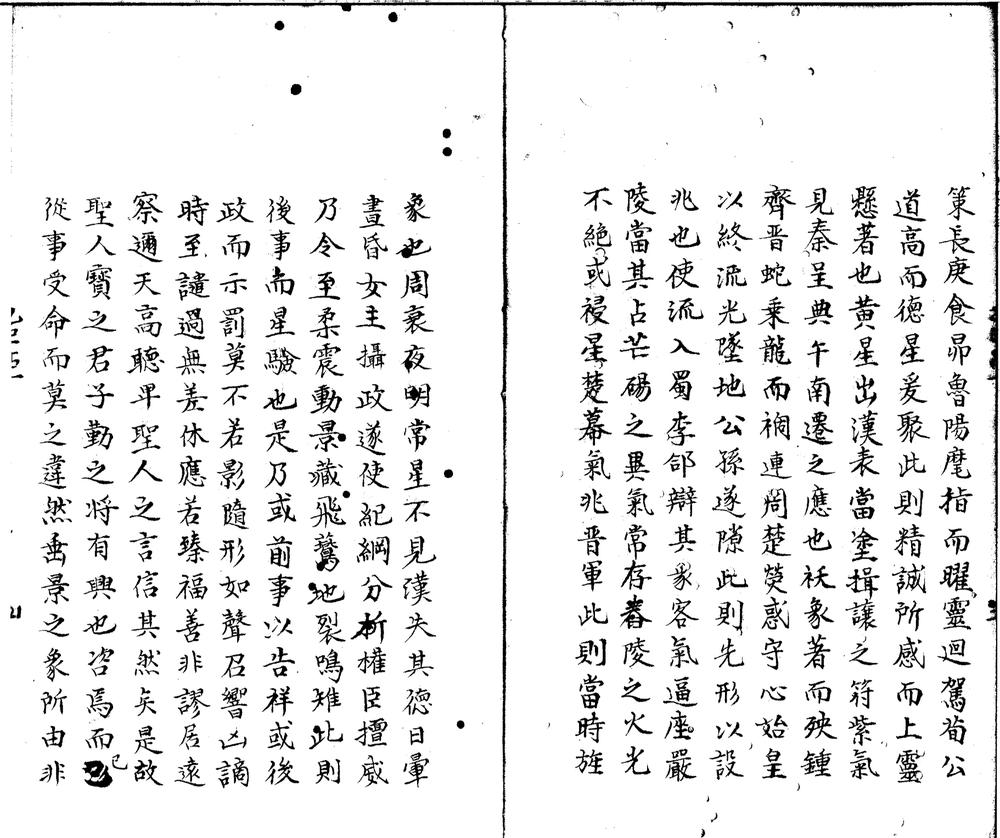 策長庚食昴魯陽麾指而曜靈迴駕荀公
道高而德星爰聚此則精誠所感而上靈
懸著也黃星出漢表當塗揖讓之符紫氣
見秦呈典午南遷之應也袄象著而殃鍾
齊晉蛇乗龍而禍連周楚熒惑守心始皇
以終流光墜地公孫遂隙此則先形以設
兆也使流入蜀李郃辯其象客氣逼座嚴
陵當其占芒碭之異氣常存舂陵之火光
不絕或祲星楚幕氣兆晉軍此則當時旌
象也周衰夜明常星不見漢失其德日暈
晝昏女主攝政遂使紀綱分析權臣擅威
乃令至柔震動景藏飛鶩地裂鳴雉此則
後事而星驗也是乃或前事以告祥或後
政而示罰莫不若影隨形如聲召響凶謫
時至譴過無差休應若臻福善非謬居遠
察邇天高聽卑聖人之言信其然矣是故
聖人寶之君子勤之將有興也咨焉而已
從事受命而莫之違然垂景之象所由非